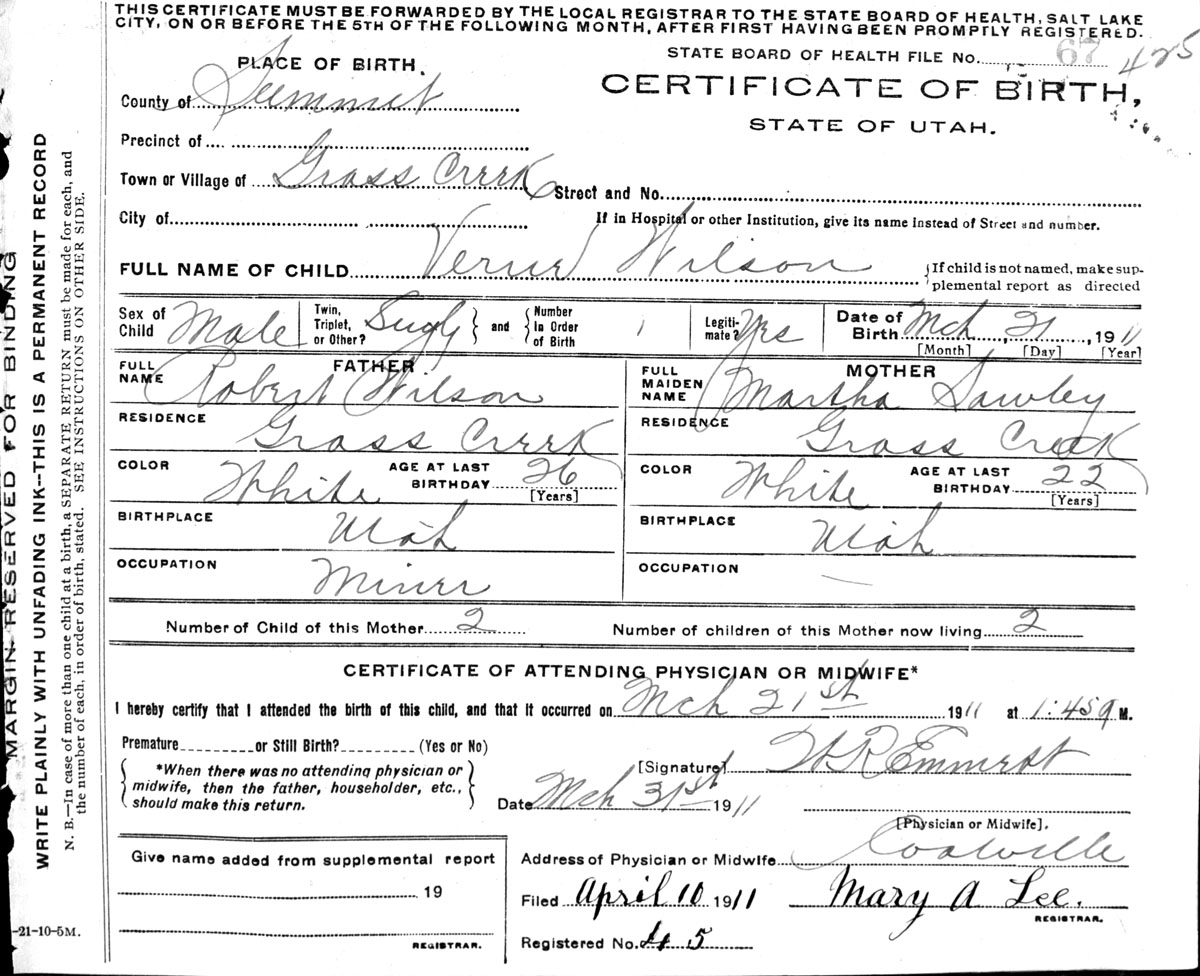 THIS CERTIFICATE MUST BE FORWARDED BY THE LOCAL REGISTRAR TO THE STATE BOARD OF HEALTH, SALT LAKE
CITY, ON OR BEFORE THE 5TH OF THE FOLLOWING MONTH, AFTER FIRST HAVING BEEN PROMPTLY REGISTERED.
STATE BOARD OF HEALTH FILE No. 67 425
PLACE OF BIRTH.
CERTIFICATE OF BIRTH,
STATE OF UTAH.
County of Summit
Precinct of
Town or Village of Grass Creek Street and No.
City of If in Hospital or other Institution, give its name instead of Street and number.
FULL NAME OF CHILD Wilson {If child is not named, make sup-
plemental report as directed
Sex of Child Male Twin, Triplet, or Other? and Number in Order of Birth 1 Legiti-mate? Yes Date of Birth Mch 21, 1911
[Month] [Day] [Year]
FATHER MOTHER
FULL NAME Robert Wilson FULL MAIDEN NAME Martha Sawley
RESIDENCE Grass Creek RESIDENCE Grass Creek
COLOR White AGE AT LAST BIRTHDAY 26 [Years] COLOR White AGE AT LAST BIRTHDAY 22 [Years]
BIRTHPLACE Utah BIRTHPLACE Utah
OCCUPATION Miner OCCUPATION —
Number of Child of this Mother 2 Number of children of this Mother now living 2
CERTIFICATE OF ATTENDING PHYSICIAN OR MIDWIFE*
I hereby certify that I attended the birth of this child, and that it occurred on Mch 21st 1911 at 1:45 M.
Premature or Still Birth? (Yes or No)
*When there was no attending physician or
midwife, then the father, householder, etc.,
should make this return.
[Signature]
Date Mch 31st 1911
[Physician or Midwife].
Give name added from supplemental report
19
REGISTRAR.
Address of Physician or Midwife Coalville
Filed April 10 1911 Mary A Lee.
REGISTRAR.
Registered No. 45
MARGIN RESERVED FOR BINDING
WRITE PLAINLY WITH UNFADING INK--THIS IS A PERMANENT RECORD
N. B.—In case of more than one child at a birth, a SEPARATE RETURN must be made for each, and
the number of each, in order of birth, stated. SEE INSTRUCTIONS ON OTHER SIDE.
-21-10-5M.